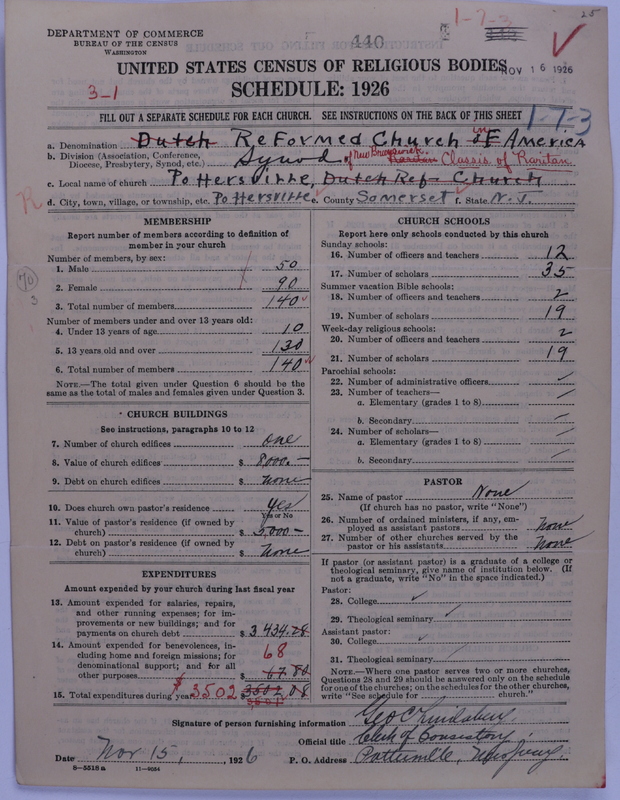 25
1-7-3
DEPARTMENT OF COMMERCE
BUREAU OF THE CENSUS
WASHINGTON
440
UNITED STATES CENSUS OF RELIGIOUS BODIES
NOV 16 1926
3-1
SCHEDULE: 1926
FILL OUT A SEPARATE SCHEDULE FOR EACH CHURCH. SEE INSTRUCTIONS ON THE BACK OF THIS SHEET
1-7-3
a. Denomination Dutch Reformed Church in America
b. Division (Association, Conference, Diocese, Presbytery, Synod, etc.) Synod of New Brunswick Raritan Classis of Raritan.
c. Local name of church Pottersville, Dutch Ref Church
R
d. City, town, village, or township, etc. Pottersville e. County Somerset f. State N.J.
MEMBERSHIP
Report number of members according to definition of
member in your church
Number of members, by sex:
1. Male 50
2. Female 90
3. Total number of members 140
Number of members under and over 13 years old:
4. Under 13 years of age 10
5. 13 years old and over 130
6. Total number of members 140
NOTE.—The total given under Question 6 should be the
same as the total of males and females given under Question 3.
CHURCH BUILDINGS
See instructions, paragraphs 10 to 12
7. Number of church edifices one
8. Value of church edifices $ 8,000.—
9. Debt on church edifices $ none
10. Does church own pastor's residence Yes
Yes or No
11. Value of pastor's residence (if owned by
church) $ 5,000—
12. Debt on pastor's residence (if owned by
church) $ None
EXPENDITURES
Amount expended by your church during last fiscal year
13. Amount expended for salaries, repairs,
and other running expenses; for im-
provements or new buildings; and for
payments on church debt $ 3434.28
14. Amount expended for benevolences, in-
cluding home and foreign missions; for
denominational support; and for all
other purposes $ 67.80
68
15. Total expenditures during year $ 3502 3502.08
CHURCH SCHOOLS
Report here only schools conducted by this church
Sunday schools:
16. Number of officers and teachers 12
17. Number of scholars 35
Summer vacation Bible schools:
18. Number of officers and teachers 2
19. Number of scholars 19
Week-day religious schools:
20. Number of officers and teachers 2
21. Number of scholars 19
Parochial schools:
22. Number of administrative officers
23. Number of teachers—
a. Elementary (grades 1 to 8)
b. Secondary
24. Number of scholars—
a. Elementary (grades 1 to 8)
b. Secondary
PASTOR
25. Name of pastor None
(If church has no pastor, write "None")
26. Number of ordained ministers, if any, em-
ployed as assistant pastors None
27. Number of other churches served by the
pastor or his assistants None
If pastor (or assistant pastor) is a graduate of a college or
theological seminary, give name of institution below. (If
not a graduate, write "No" in the space indicated.)
Pastor:
28. College
29. Theological seminary
Assistant pastor:
30. College
31. Theological seminary
NOTE.—Where one pastor serves two or more churches,
Questions 28 and 29 should be answered only on the schedule
for one of the churches; on the schedules for the other churches,
write "See schedule for church."
Signature of person furnishing information Geo C
Official title Clerk of Consistory
Date Nov 15, 1926 P. O. Address Pottersville, New Jersey
8—5518 a 11—9054